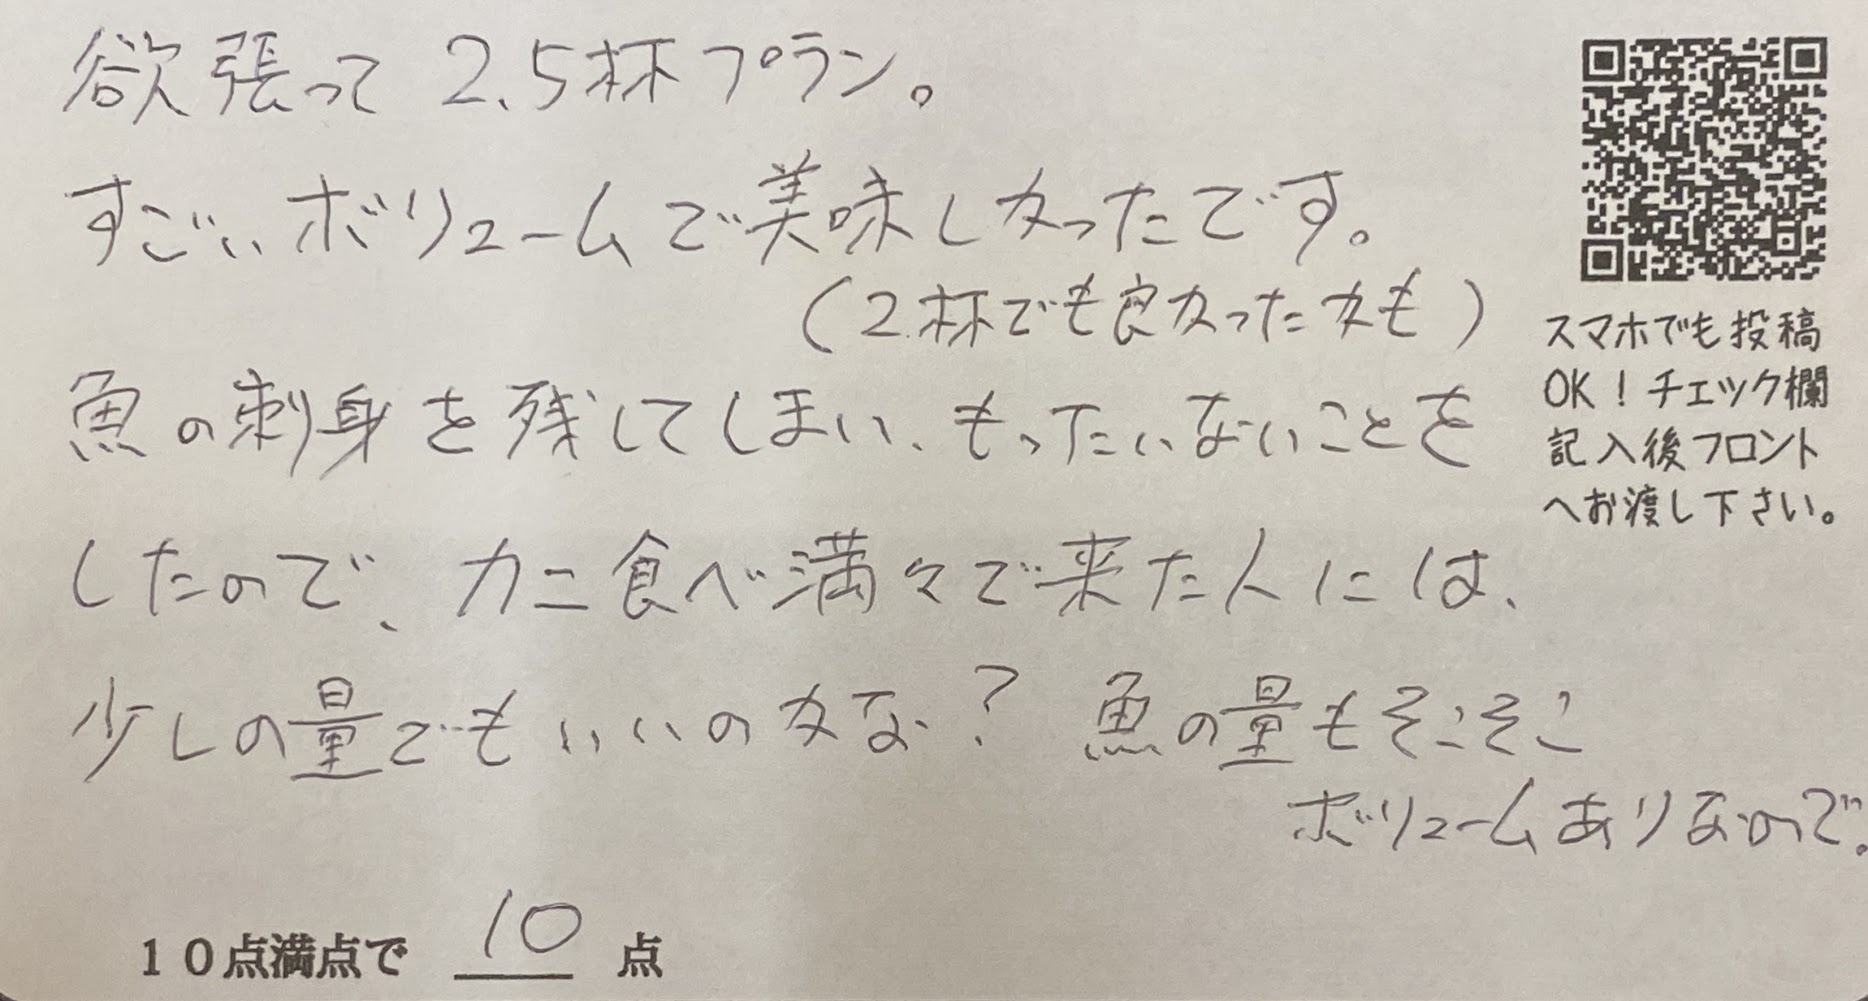 欲張って 2.5杯プラン。
すごいボリュームで美味しかったです。
(2杯でも良かったかも)
魚の刺身を残してしまい、もったいないことを
したので、カニ食べ満々で来た人には、
少しの量でもいいのかな？ 魚の量もそこそこ
ボリュームありなので。
スマホでも投稿
OK！チェック欄
記入後フロント
へお渡し下さい。
１０点満点で 10 点